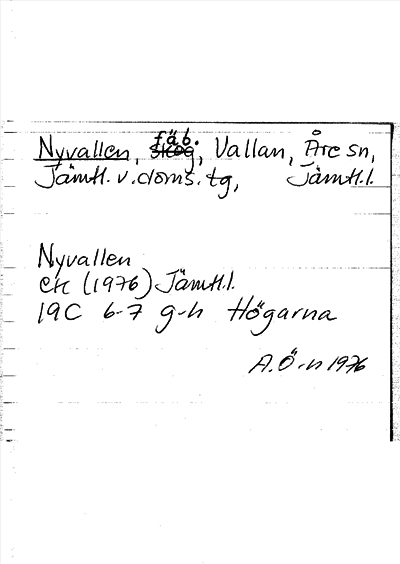 fäb.
Nyvallen, skog, Vallan, Åre sn,
Jämtl. v. doms. tg, Jämtl.l.
Nyvallen
ek (1976) Jämtl.l.
19C 6-7 g-h Högarna
A.Ö-n 1976